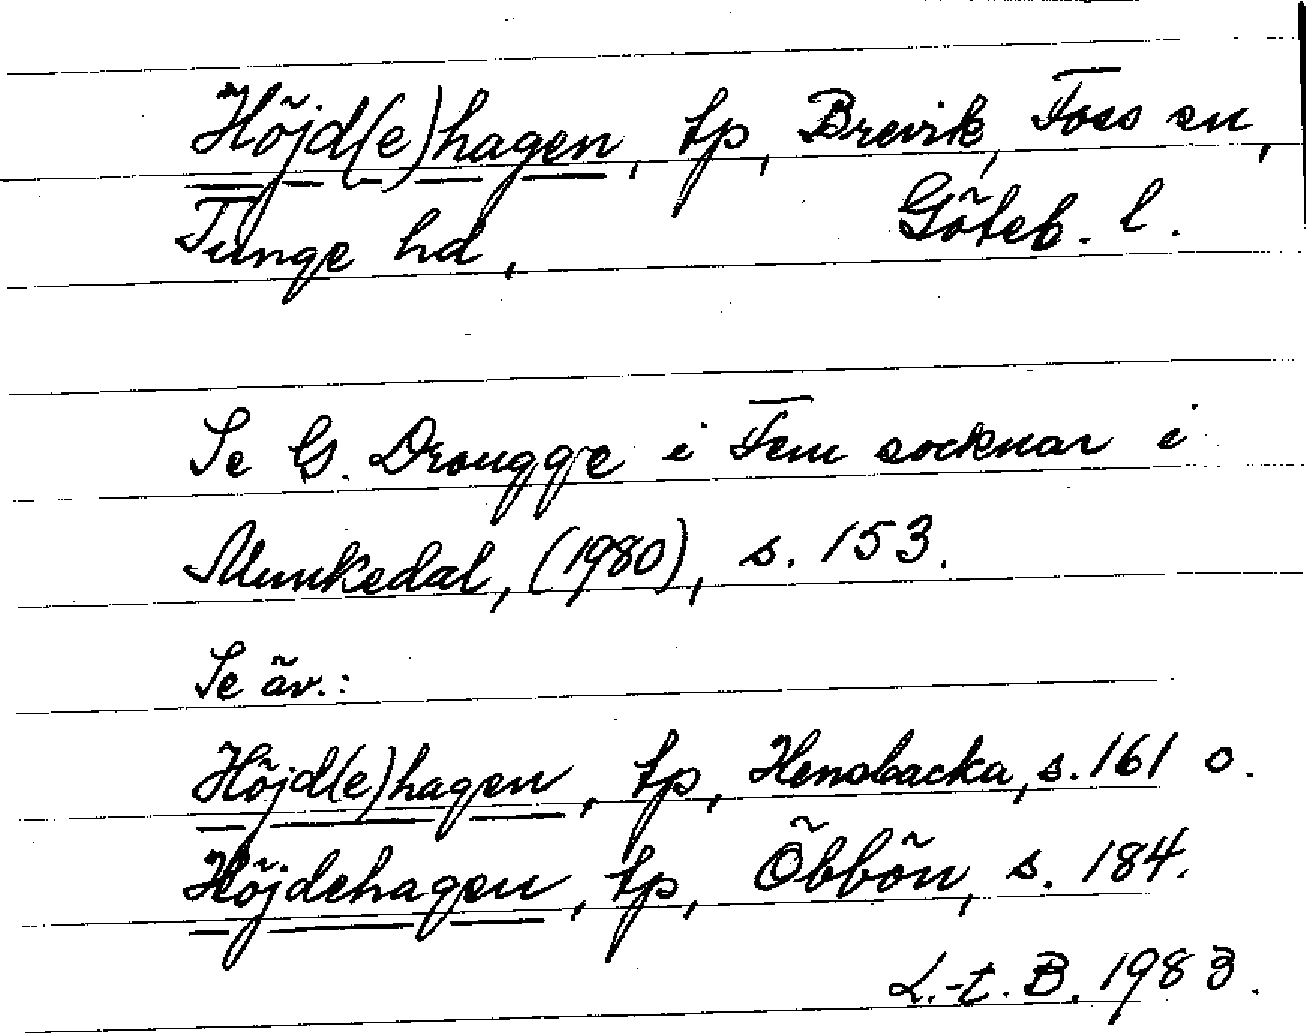 Höjd(e)hagen, tp, Brevik, Foss sn,
Tunge hd, Göteb. l.
Se G. Drougge i Fem socknar i
Munkedal, (1980), s. 153.
Se äv.:
Höjd(e)hagen, tp, Hensbacka, s. 161 o.
Höjdehagen, tp, Öbbön, s. 184.
L.-t. B. 1983.